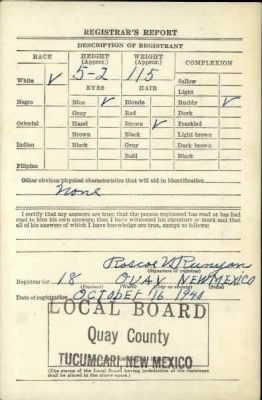 REGISTRAR'S REPORT
DESCRIPTION OF REGISTRANT
RACE HEIGHT (Approx.) WEIGHT (Approx.) COMPLEXION
White ✓ 5-2 115 Sallow
EYES HAIR Light
Negro Blue ✓ Blonde Ruddy ✓
Gray Red Dark
Oriental Hazel Brown ✓ Freckled
Brown Black Light brown
Indian Black Gray Dark brown
Bald Black
Filipino
Other obvious physical characteristics that will aid in identification
None
I certify that my answers are true; that the person registered has read or has had
read to him his own answers; that I have witnessed his signature or mark and that
all of his answers of which I have knowledge are true, except as follows:
Roscoe Runyan
(Signature of registrar)
Registrar for 18 QUAY NEW MEXICO
(Precinct) (City or county) (State)
Date of registration OCTOBER 16 1940
LOCAL BOARD
Quay County
TUCUMCARI, NEW MEXICO
(The stamp of the Local Board having jurisdiction of the registrant
shall be placed in the above space.)